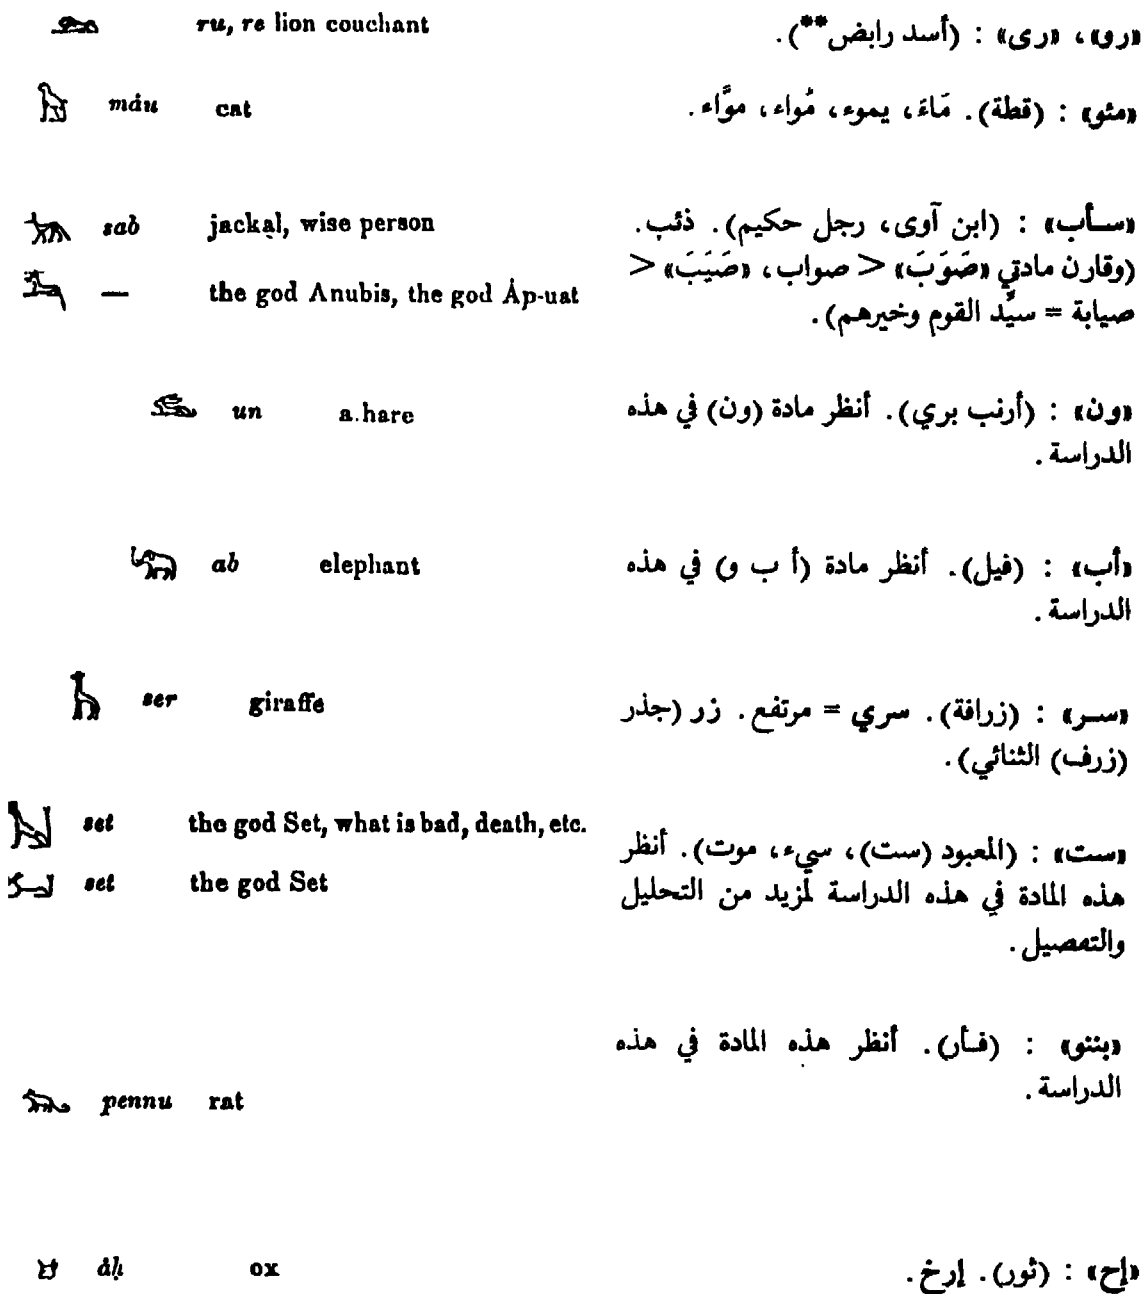 ru, re lion couchant
«رو»، «رى» : (أسد رابض**).
máu cat
«مئو» : (قطة). مَاءَ، يموء، مُواء، موَّاء.
sab jackal, wise person
«سـأب» : (ابن آوى، رجل حكيم). ذئب.
— the god Anubis, the god Áp-uat
(وقارن مادتي «صَوَبَ» > صواب، «صَيَبَ» >
صيابة = سيِّد القوم وخيرهم).
un a.hare
«ون» : (أرنب بري). أنظر مادة (ون) في هذه
الدراسة.
ab elephant
«أب» : (فيل). أنظر مادة (أ ب و) في هذه
الدراسة.
ser giraffe
«سـر» : (زرافة). سري = مرتفع. زر (جذر
(زرف) الثنائي).
set the god Set, what is bad, death, etc.
set the god Set
«ست» : (المعبود (ست)، سيء، موت). أنظر
هذه المادة في هذه الدراسة لمزيد من التحليل
والتفصيل.
«بننو» : (فـأر). أنظر هذه المادة في هذه
الدراسة.
pennu rat
áḥ ox
«إح» : (ثور). إرخ.